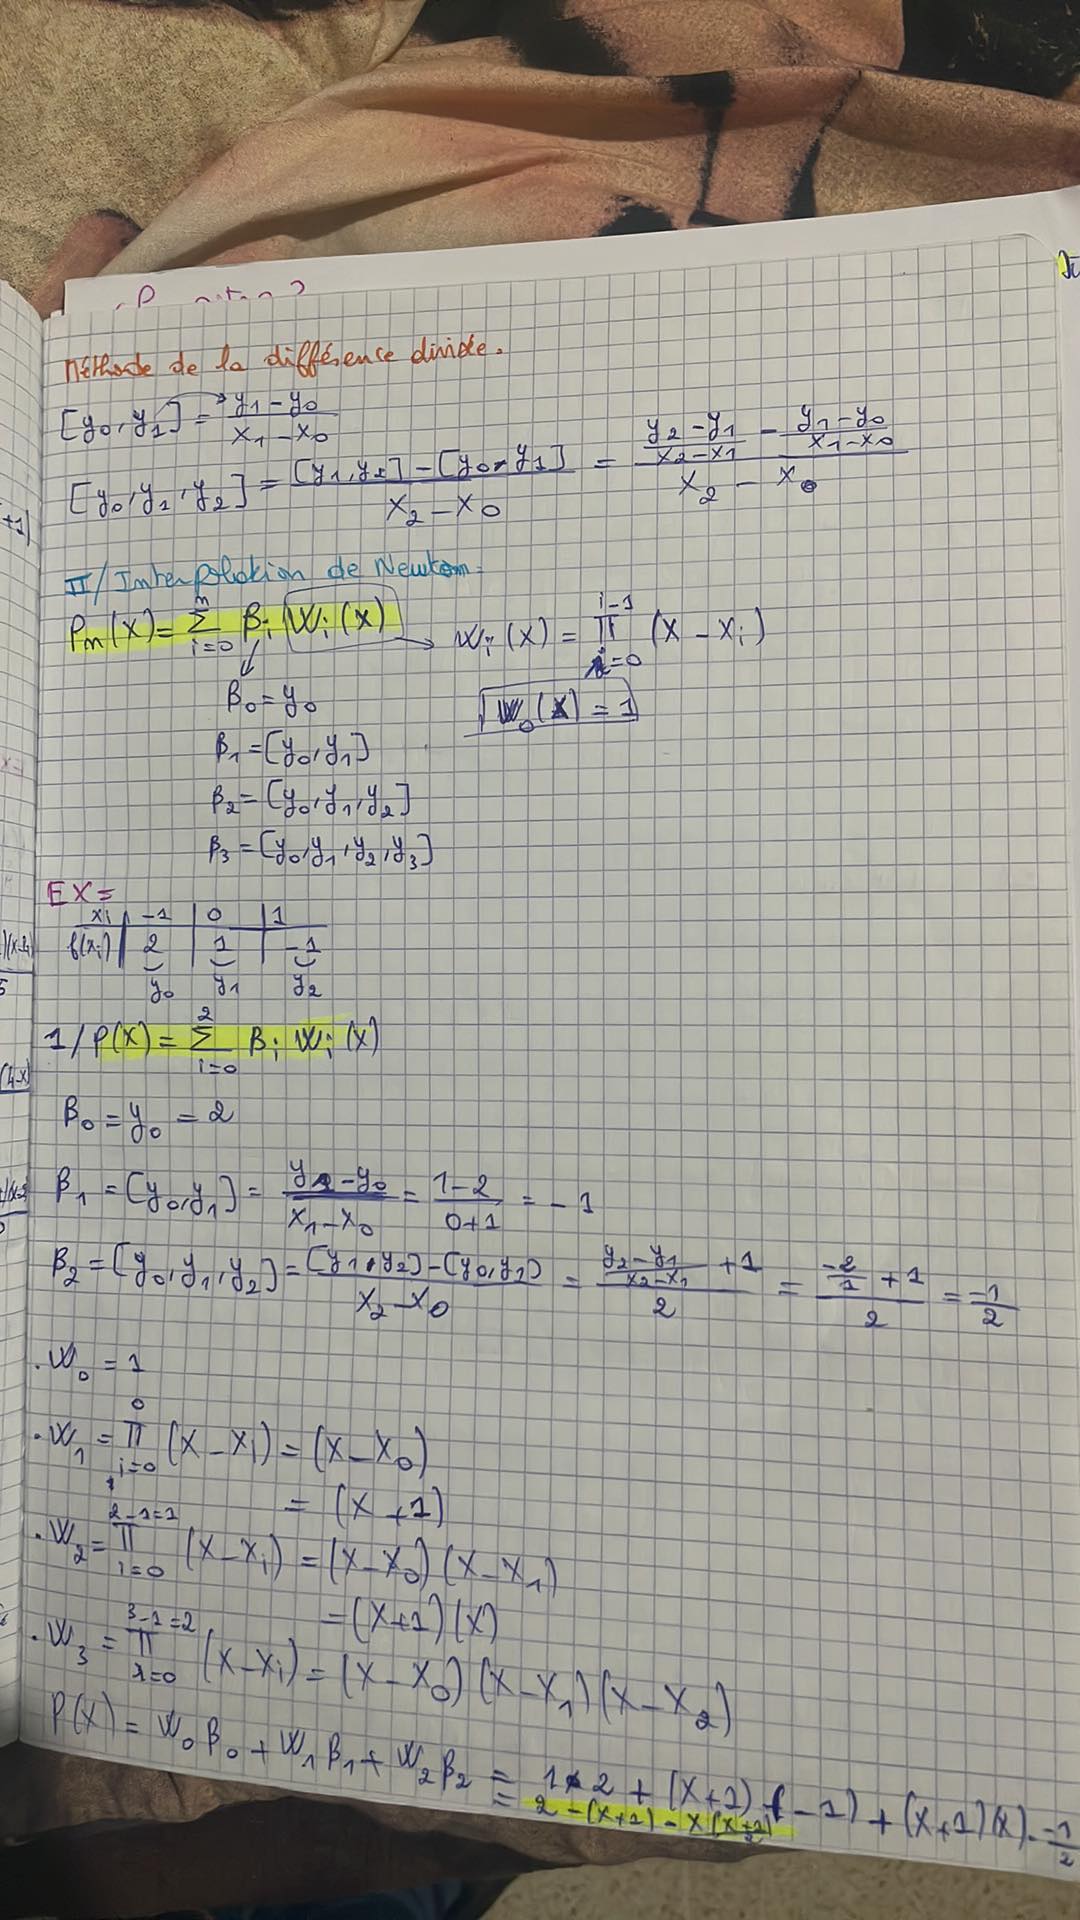 Méthode de la différence divide.
[y0, y1] = (y1 - y0)/(x1 - x0)
[y0, y1, y2] = ([y1, y2] - [y0, y1])/(x2 - x0) = ((y2 - y1)/(x2 - x1) - (y1 - y0)/(x1 - x0))/(x2 - x0)
+1)
II/ Interpolation de Newton.
Pn(x) = Σ_{i=0}^{n} βi Wi(x) → Wi(x) = Π_{i=0}^{i-1} (x - xi)
β0 = y0
W0(x) = 1
β1 = [y0, y1]
β2 = [y0, y1, y2]
β3 = [y0, y1, y2, y3]
EX =
xi | -1 | 0 | 1
f(xi) | 2 | 1 | -1
y0 y1 y2
1/ P(x) = Σ_{i=0}^{2} βi Wi(x)
(4-x)
β0 = y0 = 2
β1 = [y0, y1] = (y1 - y0)/(x1 - x0) = (1-2)/(0+1) = -1
β2 = [y0, y1, y2] = ([y1, y2] - [y0, y1])/(x2 - x0) = ((y2 - y1)/(x2 - x1) + 1)/2 = (-2/1 + 1)/2 = -1/2
. W0 = 1
. W1 = Π_{i=0}^{0} (x - xi) = (x - x0)
= (x + 1)
. W2 = Π_{i=0}^{2-1=1} (x - xi) = (x - x0) (x - x1)
= (x+1) (x)
. W3 = Π_{i=0}^{3-1=2} (x - xi) = (x - x0) (x - x1) (x - x2)
P(x) = W0 β0 + W1 β1 + W2 β2 = 1 × 2 + (x+1) · (-1) + (x+1)(x) · -1/2
= 2 - (x+1) - x(x+1)/2